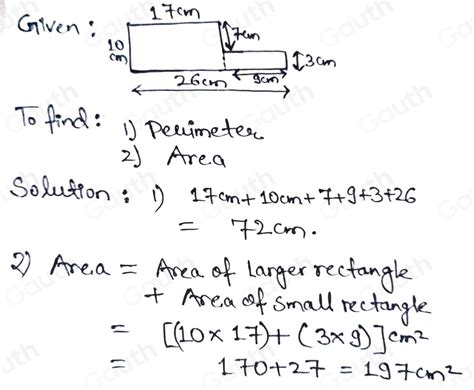 Given :
17cm
10
cm
7cm
3cm
26cm
9cm
To find : 1) Perimeter
2) Area
Solution : 1) 17cm + 10cm + 7+9+3+26
= 72cm.
2) Area = Area of larger rectangle
+ Area of small rectangle
= [(10 × 17) + (3×9)]cm²
= 170+27 = 197cm²
Gauth